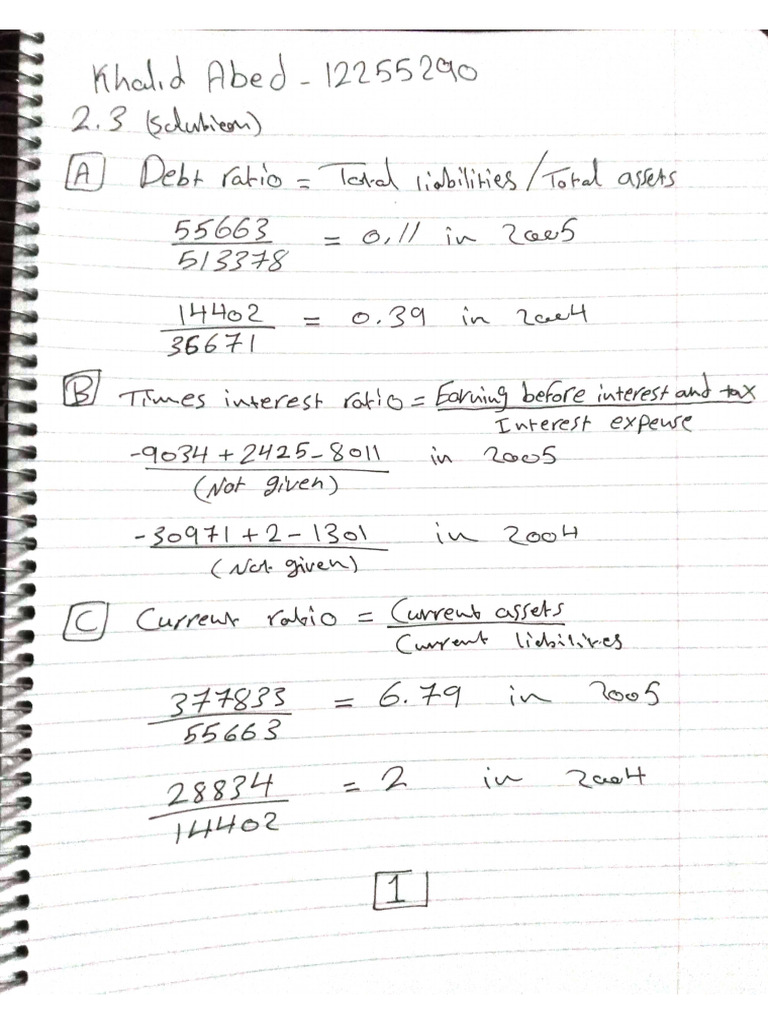 Khalid Abed - 12255290
2.3 (Solution)
A Debt ratio = Total liabilities / Total assets
55663
513378
= 0.11 in 2005
14402
36671
= 0.39 in 2004
B Times interest ratio = Earning before interest and tax
Interest expense
-9034 + 2425 - 8011 in 2005
(Not given)
-30971 + 2 - 1301 in 2004
(Not given)
C Current ratio = Current assets
Current liabilities
377833
55663
= 6.79 in 2005
28834
14402
= 2 in 2004
1